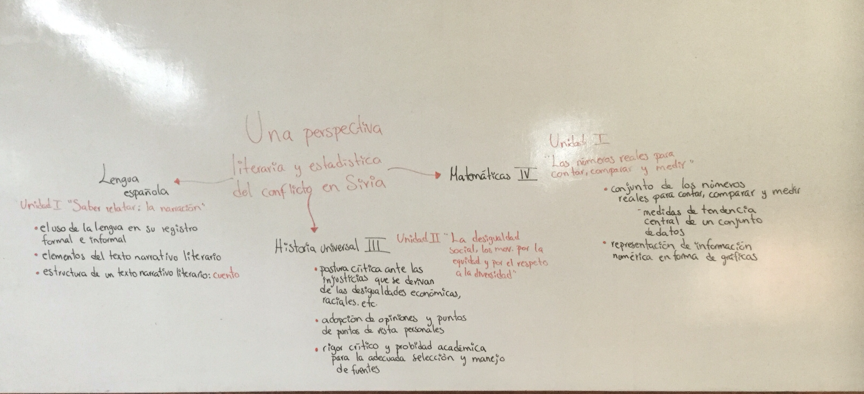 Una perspectiva
literaria y estadística
del conflicto en Siria
Lengua
española
Unidad I "Saber relatar: la narración"
• el uso de la lengua en su registro
formal e informal
• elementos del texto narrativo literario
• estructura de un texto narrativo literario: cuento
Historia universal III
Unidad II "La desigualdad
social, los mov. por la
equidad y por el respeto
a la diversidad"
• postura crítica ante las
injusticias que se derivan
de las desigualdades económicas,
raciales, etc
• adopción de opiniones y puntos
de puntos de vista personales
• rigor crítico y probidad académica
para la adecuada selección y manejo
de fuentes
Matemáticas IV
Unidad I
"Los números reales para
contar, comparar y medir"
• conjunto de los números
reales para contar, comparar y medir
- medidas de tendencia
central de un conjunto
de datos
• representación de información
numérica en forma de gráficas